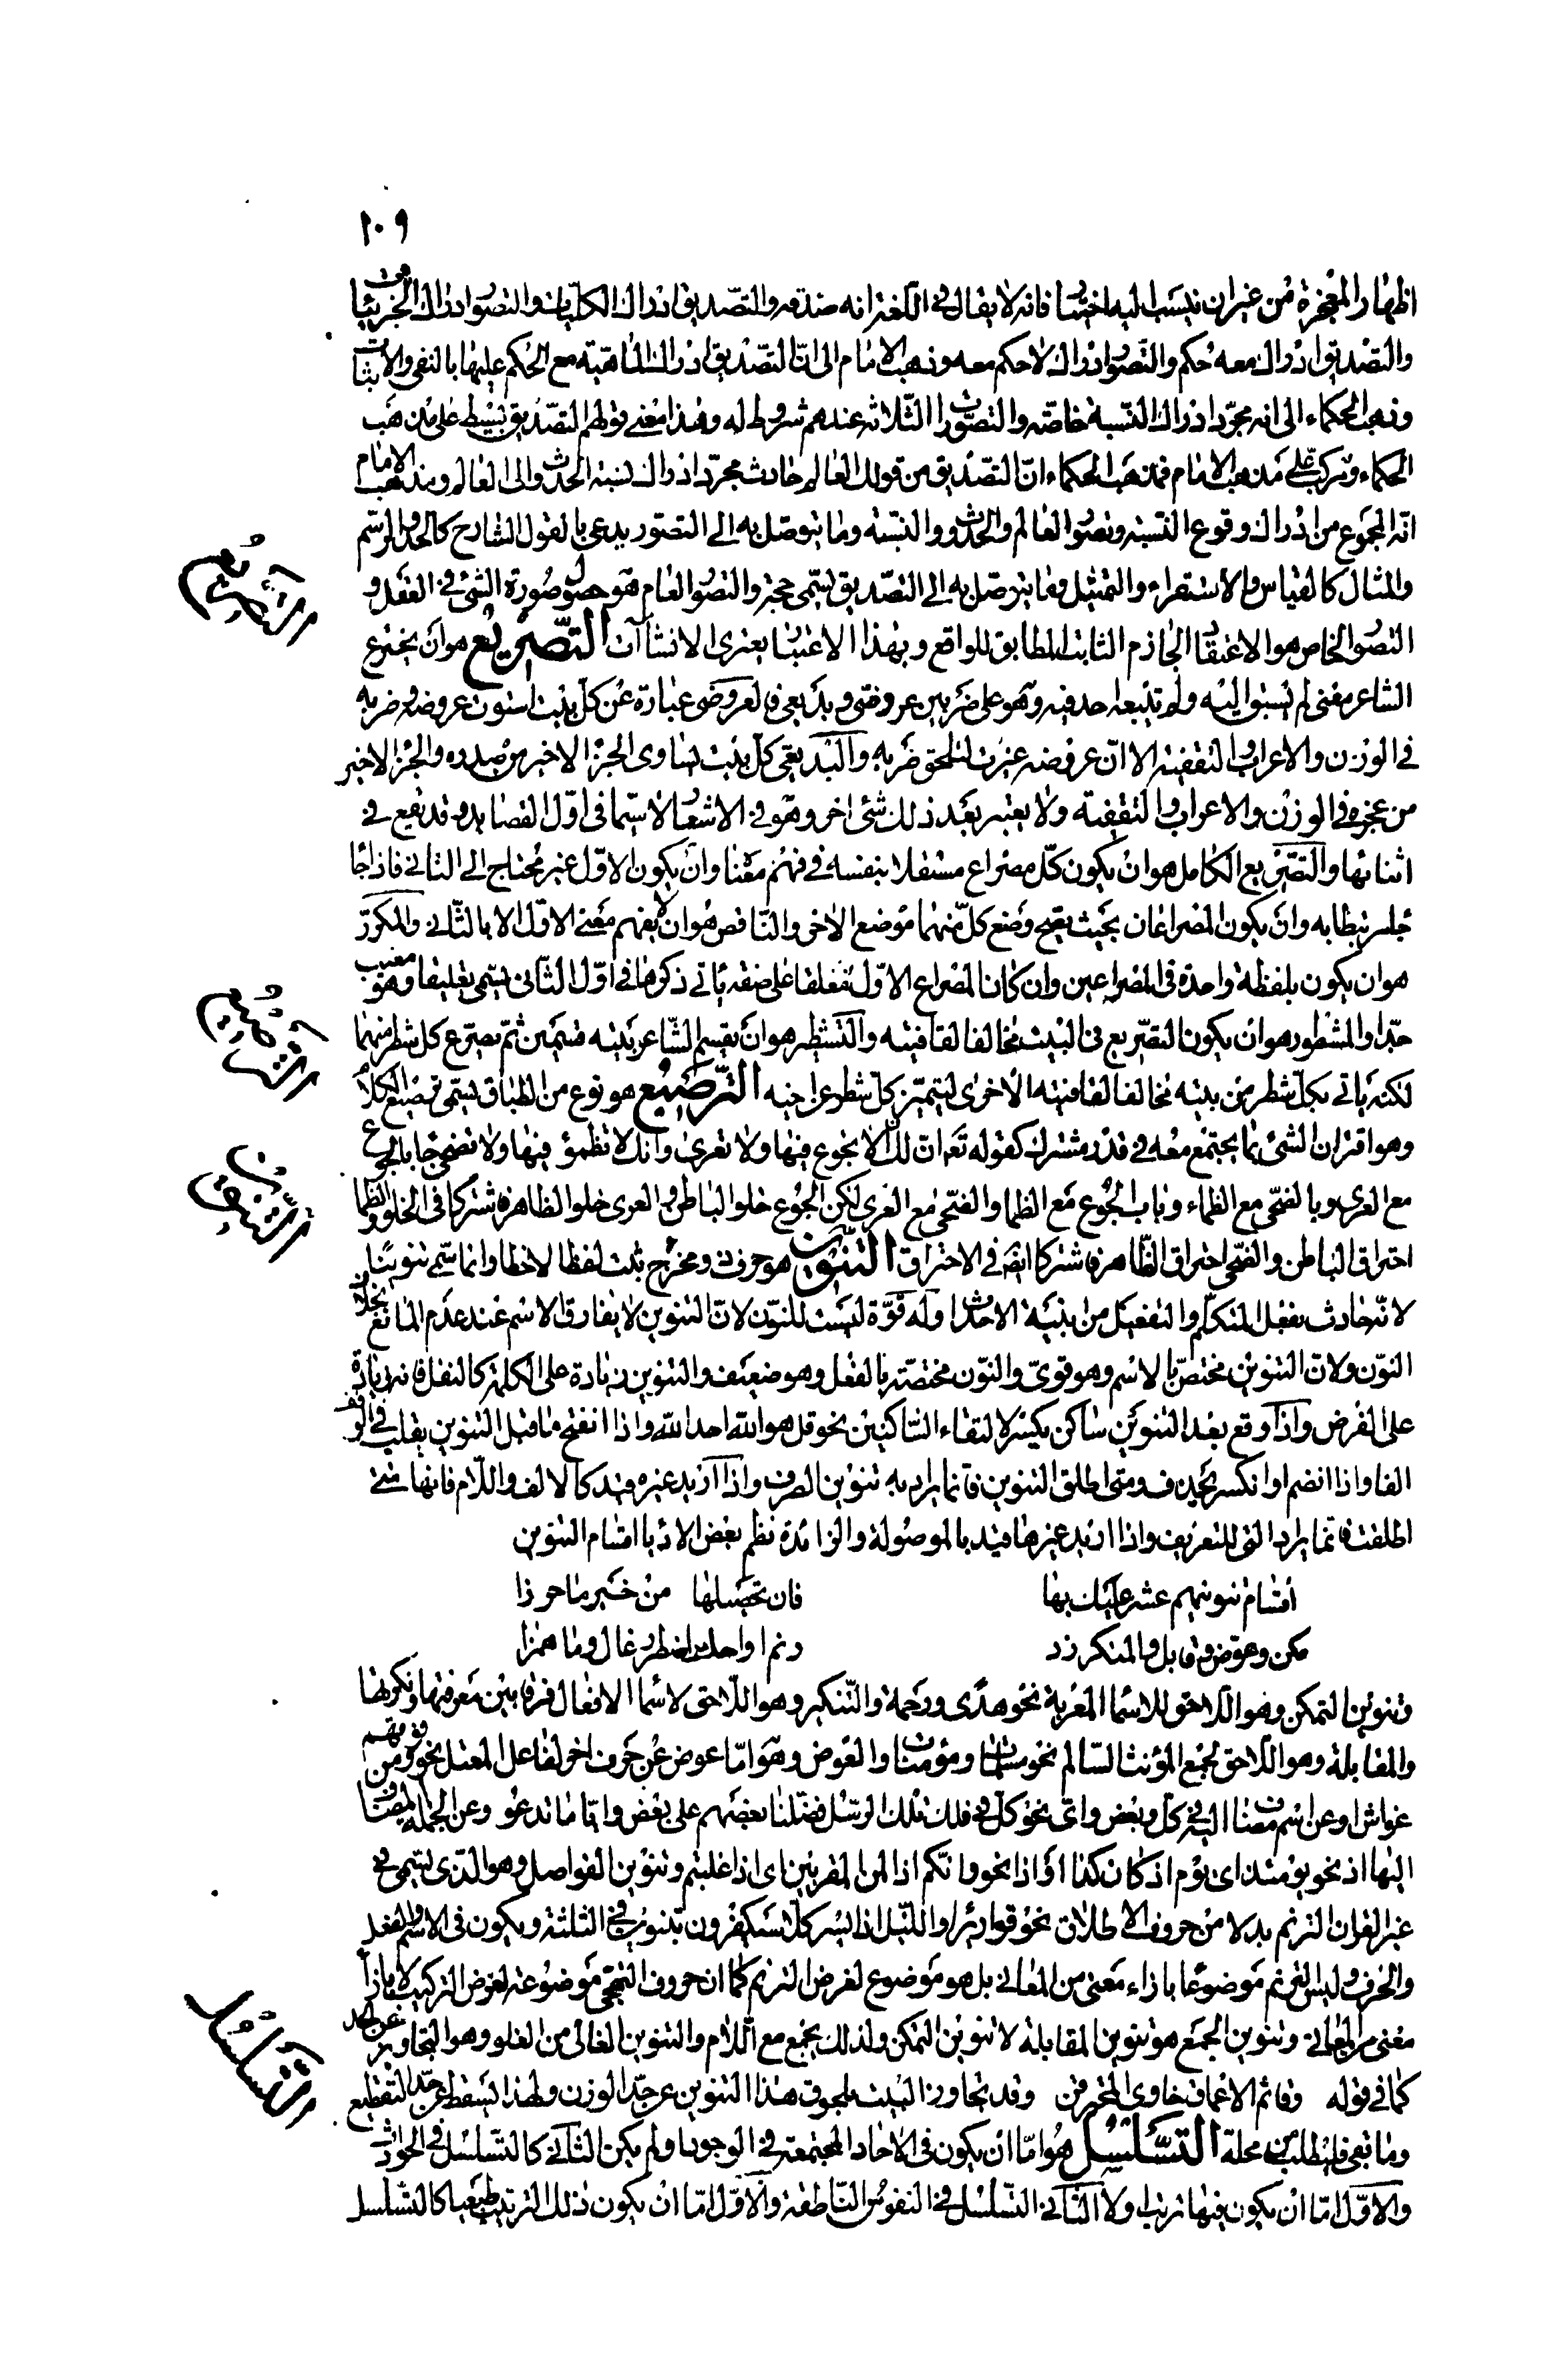 ١٠٩
اظهار المعجزة من غير ان ينسب اليه اختيارا فانه لا يقال فى اللغة انه صدقه والتصديق ادراك الكليات والتصور ادراك الجزئيات
والتصديق ادراك معه حكم والتصور ادراك لا حكم معه وذهب الامام الى ان التصديق ادراك الماهية مع الحكم عليها بالنفى والاثبات
وذهب الحكماء الى انه مجرد ادراك النسبة خاصة والتصورات الثلاثة عندهم شروط له وهذا معنى قولهم التصديق بسيط على مذهب
الحكماء ومركب على مذهب الامام فمذهب الحكماء ان التصديق من قولك العالم حادث مجرد ادراك نسبة الحدوث الى العالم ومذهب الامام
انه المجموع من ادراك وقوع النسبة وتصور العالم والحدوث والنسبة وما يتوصل به الى التصور يدعى بالقول الشارح كالحد والرسم
والمثال كالقياس والاستقراء والتمثيل وما يتوصل به الى التصديق يسمى حجة والتصور العام هو حصول صورة الشئ فى العقل و
التصور الخاص هو الاعتقاد الجازم الثابت المطابق للواقع وبهذا الاعتبار يعترى الانشاآت التصريع هو ان يخترع
الشاعر معنى لم يسبق اليه ولم يتبعه احد فيه وهو على ضربين عروضى وبديعى فالعروضى عبارة عن كل بيت استوت عروضه وضربه
فى الوزن والاعراب والتقفية الا ان عروضه غيرت لتلحق ضربه والبديعى كل بيت يساوى الجزأ الاخير من صدره والجزأ الاخير
من عجزه فى الوزن والاعراب والتقفية ولا يعتبر بعد ذلك شئ اخر وهو فى الاشعار لا سيما فى اول القصايد وقد يقع فى
اثنائها والتصريع الكامل هو ان يكون كل مصراع مستقلا بنفسه فى فهم معناه وان يكون الاول غير محتاج الى الثانى فاذا جا
جا مرتبطا به وان يكون المصراعان بحيث يصح وضع كل منهما موضع الاخر والناقص هو ان لا يفهم معنى الاول الا بالثانى والمكرر
هو ان يكون بلفظة واحدة فى المصراعين وان كان المصراع الاول معلقا على صفة ياتى ذكرها فى اول الثانى يسمى تعليقا وهو معيب
جدا والمشطور هو ان يكون التصريع فى البيت مخالفا لقافيته والتشطير هو ان يقسم الشاعر بيته قسمين ثم يصرع كل شطر منهما
لكنه ياتى بكل شطر من بيته مخالفا لقافيته الاخرى ليتميز كل شطر عن اخيه الترصيع هو نوع من الطباق يسمى ترصيع الكلام
وهو اقتران الشئ بما يجتمع معه فى قدر مشترك كقوله تعه ان لك الا تجوع فيها ولا تعرى وانك لا تظمؤ فيها ولا تضحى جا بالجوع
مع العرى وبالضحى مع الظماء وباب الجوع مع الظما والضحى مع العرى لكن الجوع خلو الباطن والعرى خلو الظاهر فاشتركا فى الخلو والظما
احتراق الباطن والضحى احتراق الظاهر فاشتركا ايضا فى الاحتراق التنوين هو حرف ذو مخرج يثبت لفظا لا خطا وانما سمى تنوينا
لانه حادث بفعل المتكلم والتفعيل من ابنية الاحداث وله قوة ليست للنون لان التنوين لا يفارق الاسم عند عدم المانع بخلاف
النون ولان التنوين مختص بالاسم وهو قوى والنون مختصة بالفعل وهو ضعيف والتنوين زيادة على الكلمة كالنفل فانه زيادة
على الفرض واذا وقع بعد التنوين ساكن يكسر لالتقاء الساكنين نحو قل هو الله احد الله واذا انفتح ما قبل التنوين يقلب فى الوقف
الفا واذا انضم او انكسر يحذف ومتى اطلق التنوين فانما يراد به تنوين الصرف واذا اريد غيره قيد كالالف واللام فانها متى
اطلقت فانما يراد التى للتعريف واذا اريد غيرها قيد بالموصولة والزائدة نظم بعض الادبا اقسام التنوين
اقسام تنوينهم عشر عليك بها فان تحصيلها من خير ما حرزا
مكن وعوض وقابل والمنكر زد رنم او احك اضطرر غال وما همزا
وتنوين التمكن وهو اللاحق للاسما المعربة نحو هدى ورحمة والتنكير وهو اللاحق لاسما الافعال فرقا بين معرفتها ونكرتها
والمقابلة وهو اللاحق لجمع المؤنث السالم نحو مسلمات ومؤمنات والعوض وهو اما عوض عن حرف اخر لفاعل المعتل نحو ومن فوقهم
غواش او عن اسم مضاف اليه فى كل وبعض واى نحو كل فى فلك تلك الرسل فضلنا بعضهم على بعض وايا ما تدعو وعن الجملة المضاف
اليها اذ نحو يومئذ اى يوم اذ كان كذا او اذا نحو وانكم اذا لمن المقربين اى اذا غلبتم وتنوين الفواصل وهو الذى يسمى فى
غير القران الترنم بدلا من حروف الاطلاق نحو قواريرا والليل اذا يسر كلا سيكفرون بتنوين الثلثة ويكون فى الاسم والفعل
والحرف وليس الترنم موضوعا بازاء معنى من المعانى بل هو موضوع لغرض الترنم كما ان حروف التهجى موضوعة لغرض التركيب لا بازاء
معنى من المعانى وتنوين الجمع هو تنوين المقابلة لا تنوين التمكن ولذلك يجمع مع اللام والتنوين الغالى من الغلو وهو التجاوز عن الحد
كما فى قوله وقاتم الاعماق خاوى المخترقن وقد تجاوز البيت بلحوق هذا التنوين عن حد الوزن ولهذا يسقط عن حد التقطيع
وما بقى فليطلب من محلة التسلسل هو اما ان يكون فى الاحاد المجتمعة فى الوجود او لم يكن الثانى كالتسلسل فى الحوادث
والاول اما ان يكون فيها ترتيب او لا الثانى التسلسل فى النفوس الناطقة والاول اما ان يكون ذلك الترتيب طبيعيا كالتسلسل
التصريع
الترصيع
التنوين
التسلسل